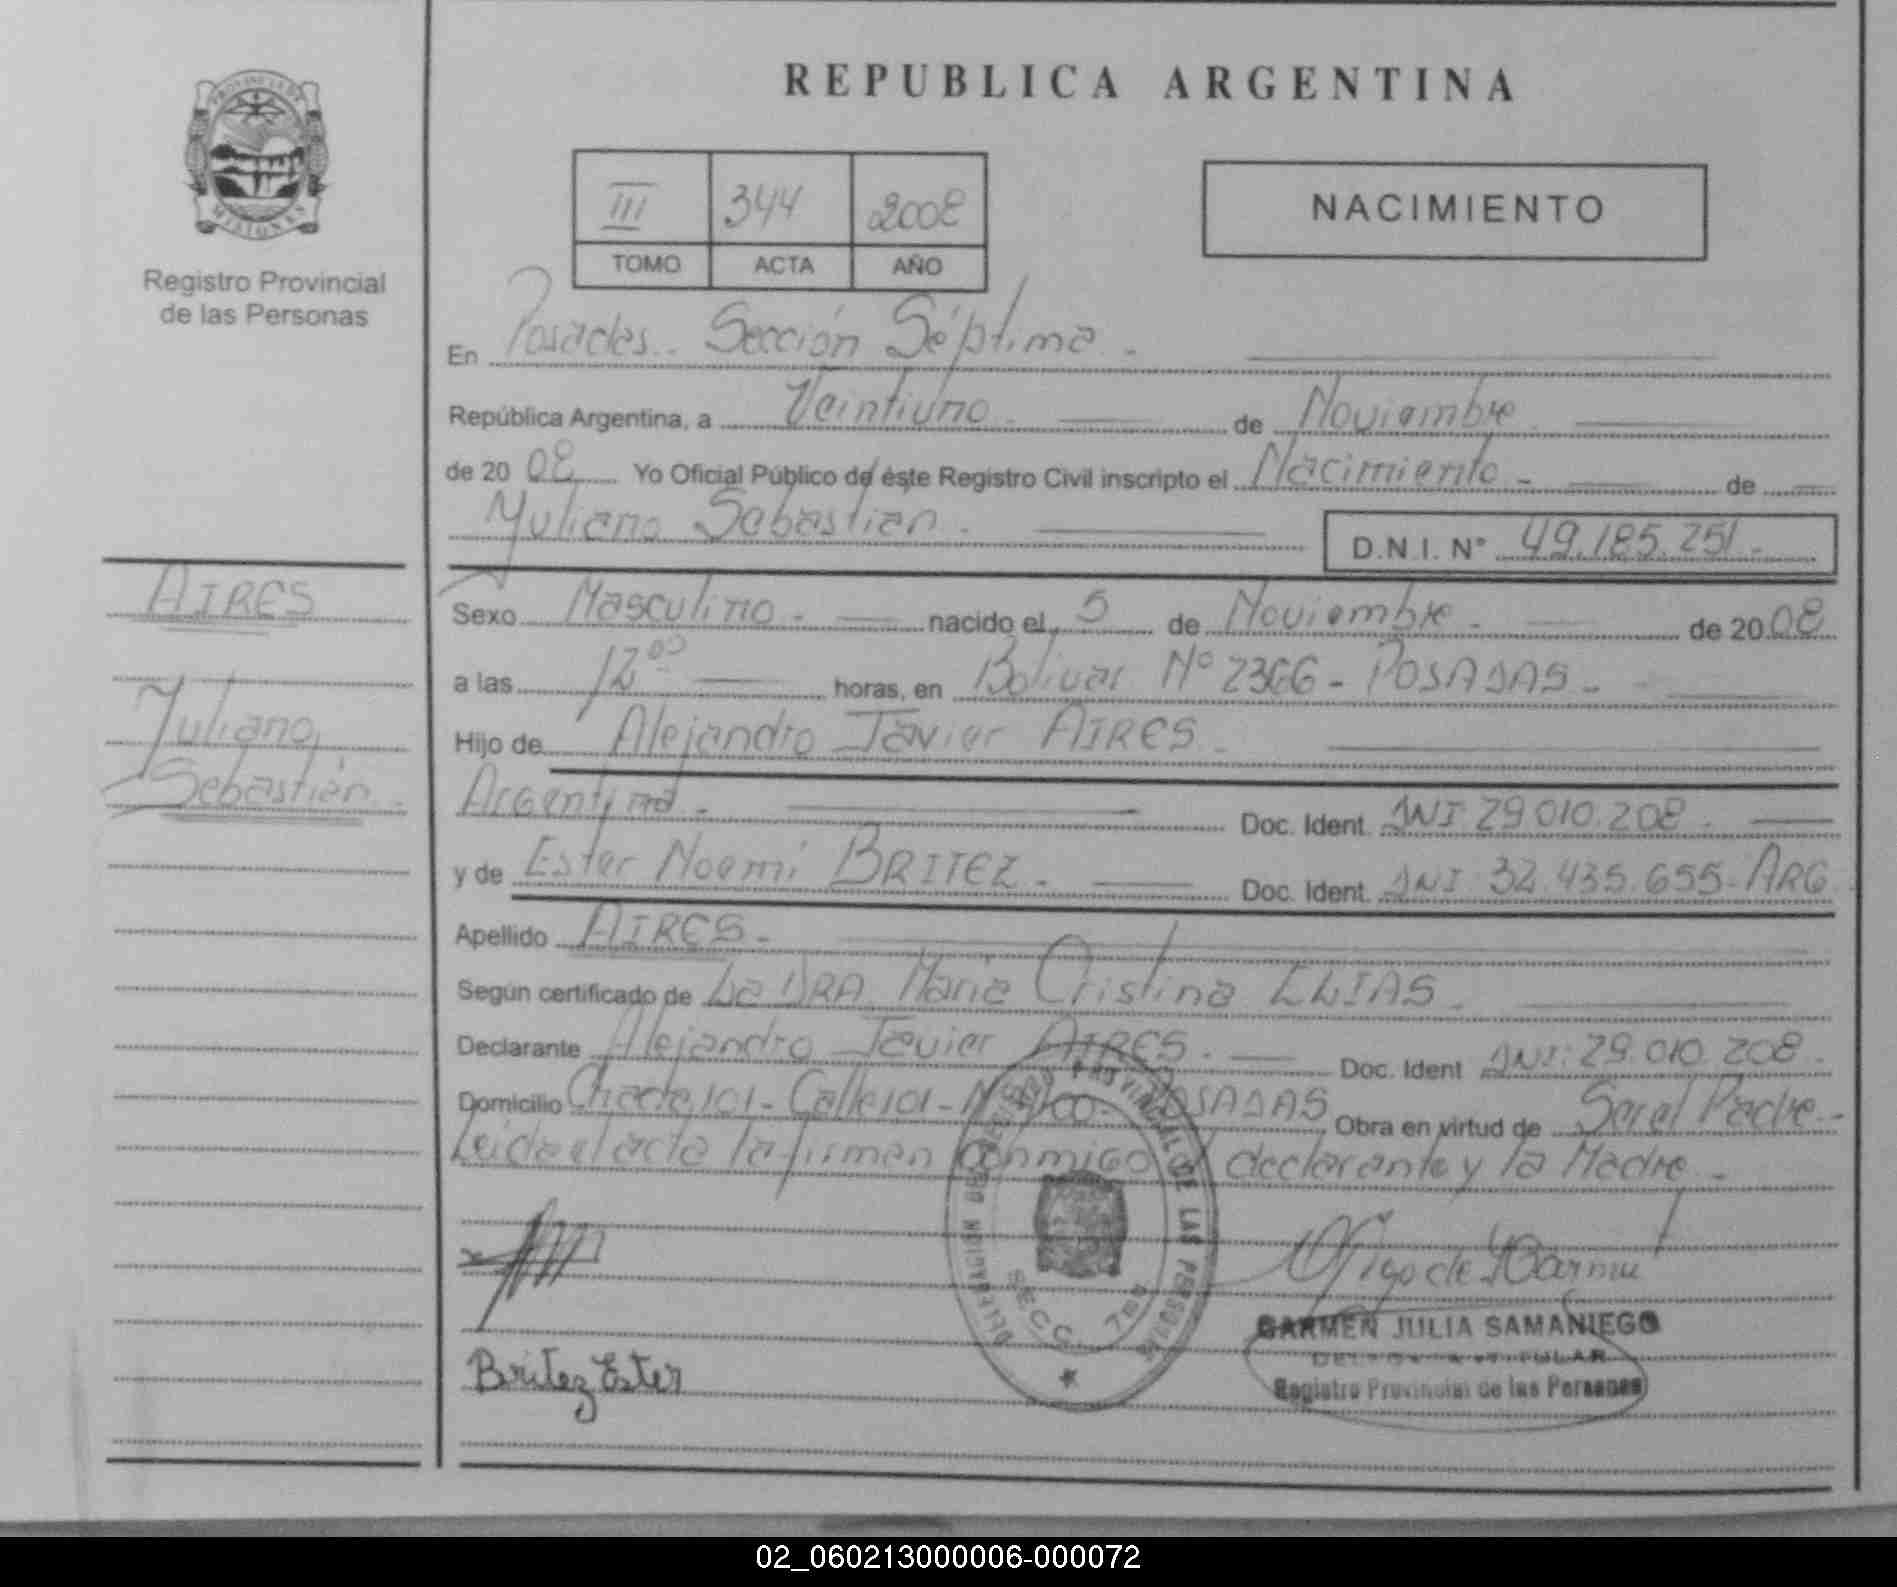 REPUBLICA ARGENTINA
PROVINCIA DE MISIONES
Registro Provincial
de las Personas
III 344 2008
TOMO ACTA AÑO
NACIMIENTO
En Posadas.. Sección Séptima -
República Argentina, a Veintiuno. de Noviembre
de 20 08 Yo Oficial Público de éste Registro Civil inscripto el Nacimiento - de
Yuliano Sebastián. D.N.I. Nº 49.185.251.-
AIRES
Yuliano,
Sebastián.-
Sexo Masculino.- nacido el 5 de Noviembre.- de 20 08
a las 12⁰⁰ horas, en Bolivar Nº 2366 - POSADAS -
Hijo de Alejandro Javier AIRES.
Argentina.- Doc. Ident. DNI 29.010.208.
y de Ester Noemi BRITEZ.- Doc. Ident. DNI 32.435.655- ARG.
Apellido AIRES.-
Según certificado de La DRA María Cristina ELIAS.
Declarante Alejandro Javier AIRES. Doc. Ident DNI: 29.010.208.
Domicilio POSADAS Obra en virtud de Ser el Padre.-
Leida el acta la firman conmigo el declarante y la Madre.-
DELEGACION REGISTRO PROVINCIAL DE LAS PERSONAS
SECC. 7ma
Britez Ester
CARMEN JULIA SAMANIEGO
DELEGADA TITULAR
Registro Provincial de las Personas
02_060213000006-000072